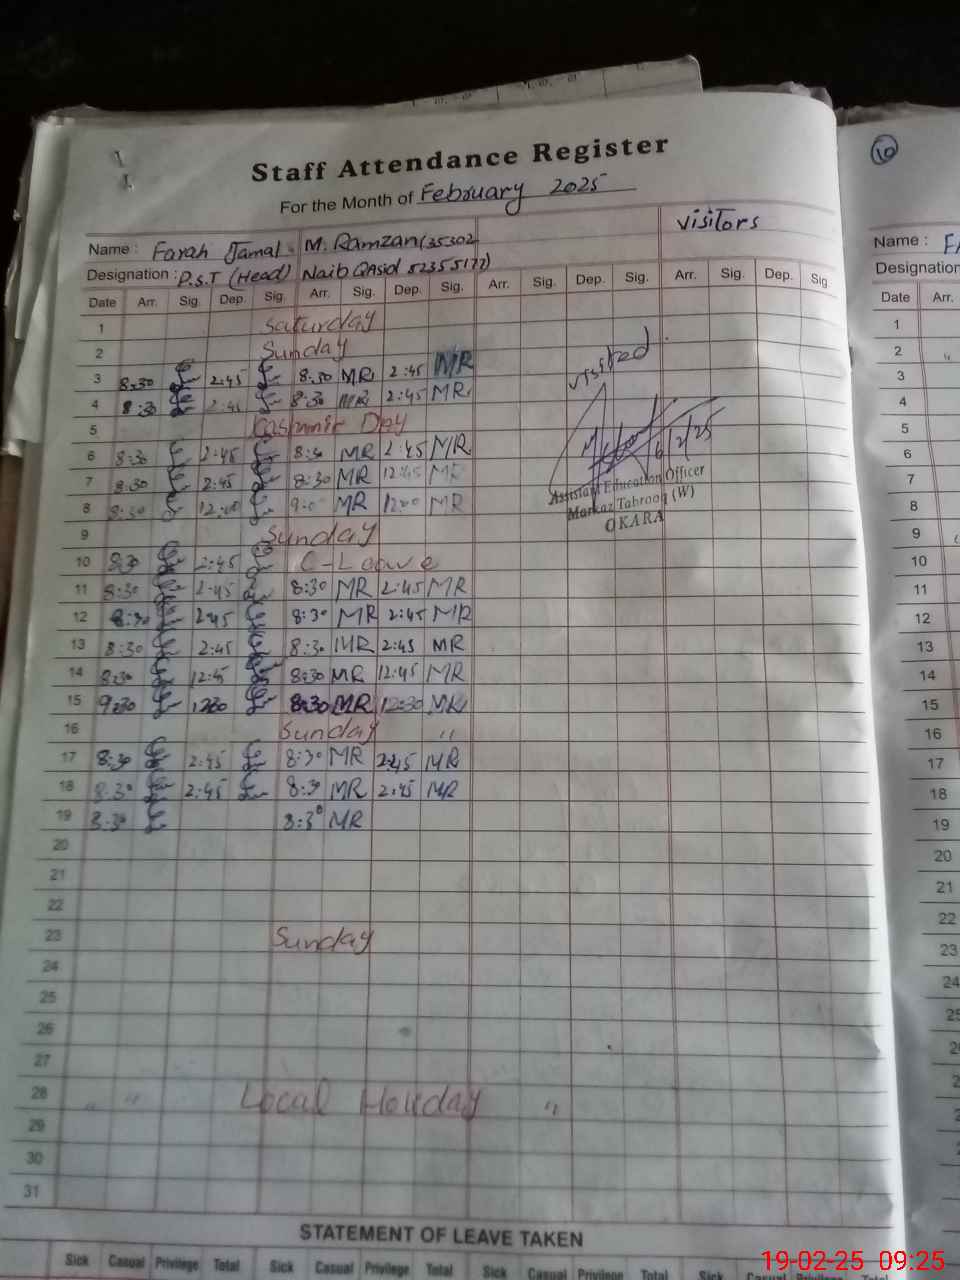 10
Staff Attendance Register
For the Month of February 2025
Name : Farah Jamal M. Ramzan (35302 Visitors
Designation : P.S.T (Head) Naib Qasid 52355177)
Date Arr. Sig. Dep. Sig. Arr. Sig. Dep. Sig. Arr. Sig. Dep. Sig. Arr. Sig. Dep. Sig
1 Saturday
2 Sunday
3 8:30 2:45 8:30 MR 2:45 MR
4 8:30 2:45 8:30 MR 2:45 MR
5 Kashmir Day
6 8:30 2:45 8:30 MR 2:45 MR
7 8:30 2:45 8:30 MR 12:45 MR
8 8:30 12:00 9:00 MR 12:00 MR
visited
6/2/25
Assistant Education Officer
Markaz Tabrooq (W)
OKARA
9 Sunday
10 8:30 2:45 C-Leave
11 8:30 2:45 8:30 MR 2:45 MR
12 8:30 2:45 8:30 MR 2:45 MR
13 8:30 2:45 8:30 MR 2:45 MR
14 8:30 12:45 8:30 MR 12:45 MR
15 9:30 1230 8:30 MR 12:30 MR
16 Sunday "
17 8:30 2:45 8:30 MR 2:45 MR
18 8:30 2:45 8:30 MR 2:45 MR
19 8:30 8:30 MR
20
21
22
23 Sunday
24
25
26
27
28 " " Local Holiday "
29
30
31
STATEMENT OF LEAVE TAKEN
Sick Casual Privilege Total Sick Casual Privilege Total Sick Casual Privilege Total Sick Casual Privilege Total
Name :
Designation
Date Arr.
1
2
3
4
5
6
7
8
9
10
11
12
13
14
15
16
17
18
19
20
21
22
23
24
19-02-25 09:25